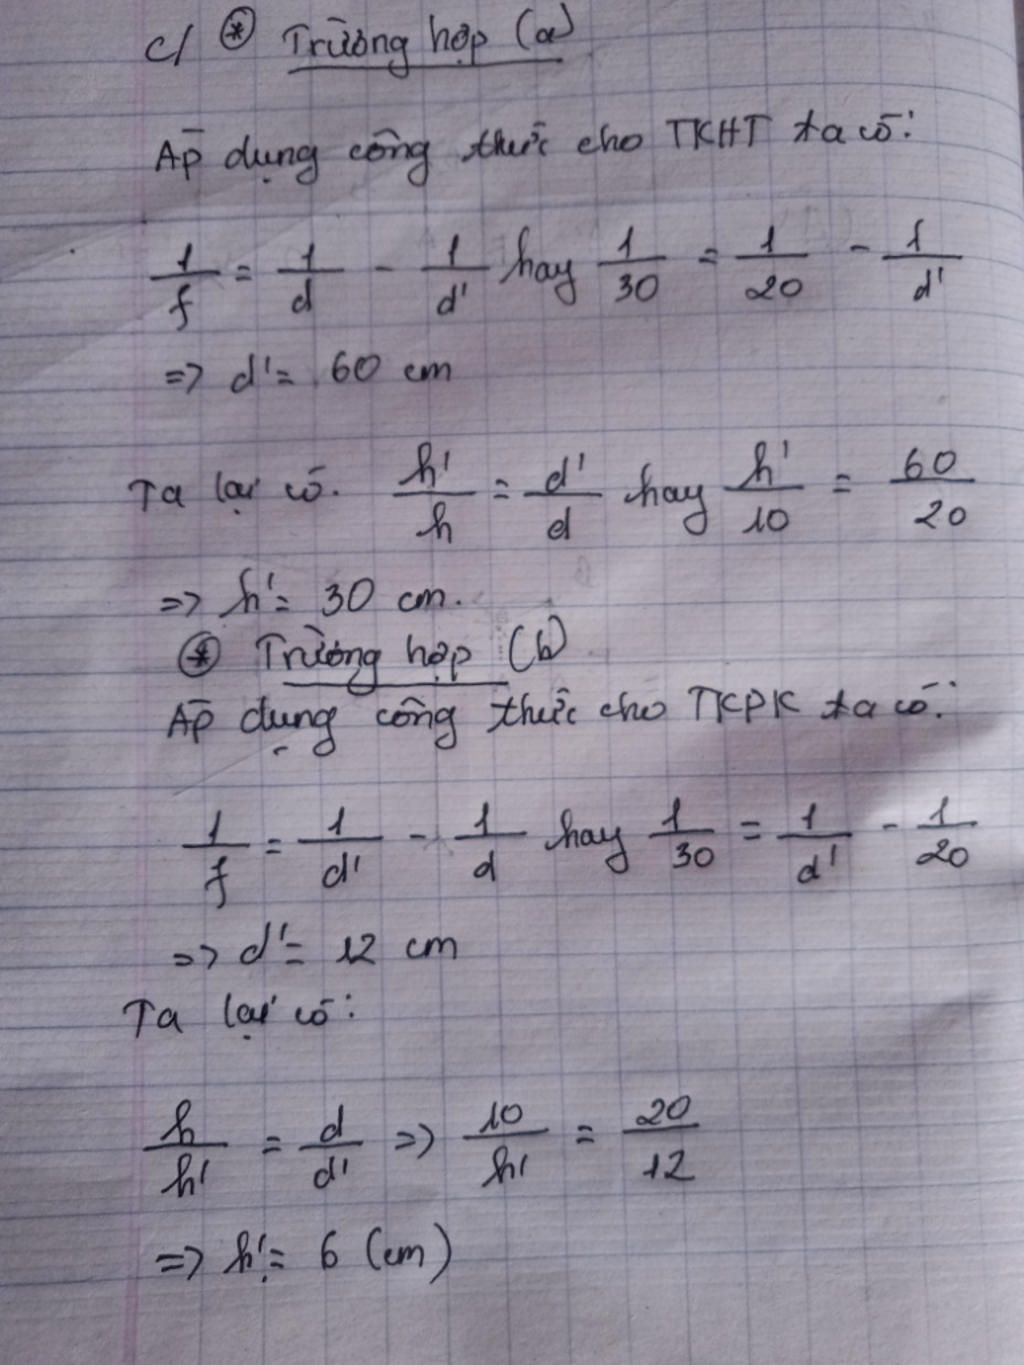 c/ ⊛ Trường hợp (a)
Áp dụng công thức cho TKHT ta có:
1/f = 1/d - 1/d' hay 1/30 = 1/20 - 1/d'
=> d' = 60 cm
Ta lại có. h'/h = d'/d hay h'/10 = 60/20
=> h' = 30 cm.
⊛ Trường hợp (b)
Áp dụng công thức cho TKPK ta có:
1/f = 1/d' - 1/d hay 1/30 = 1/d' - 1/20
=> d' = 12 cm
Ta lại có:
h/h' = d/d' => 10/h' = 20/12
=> h' = 6 (cm)